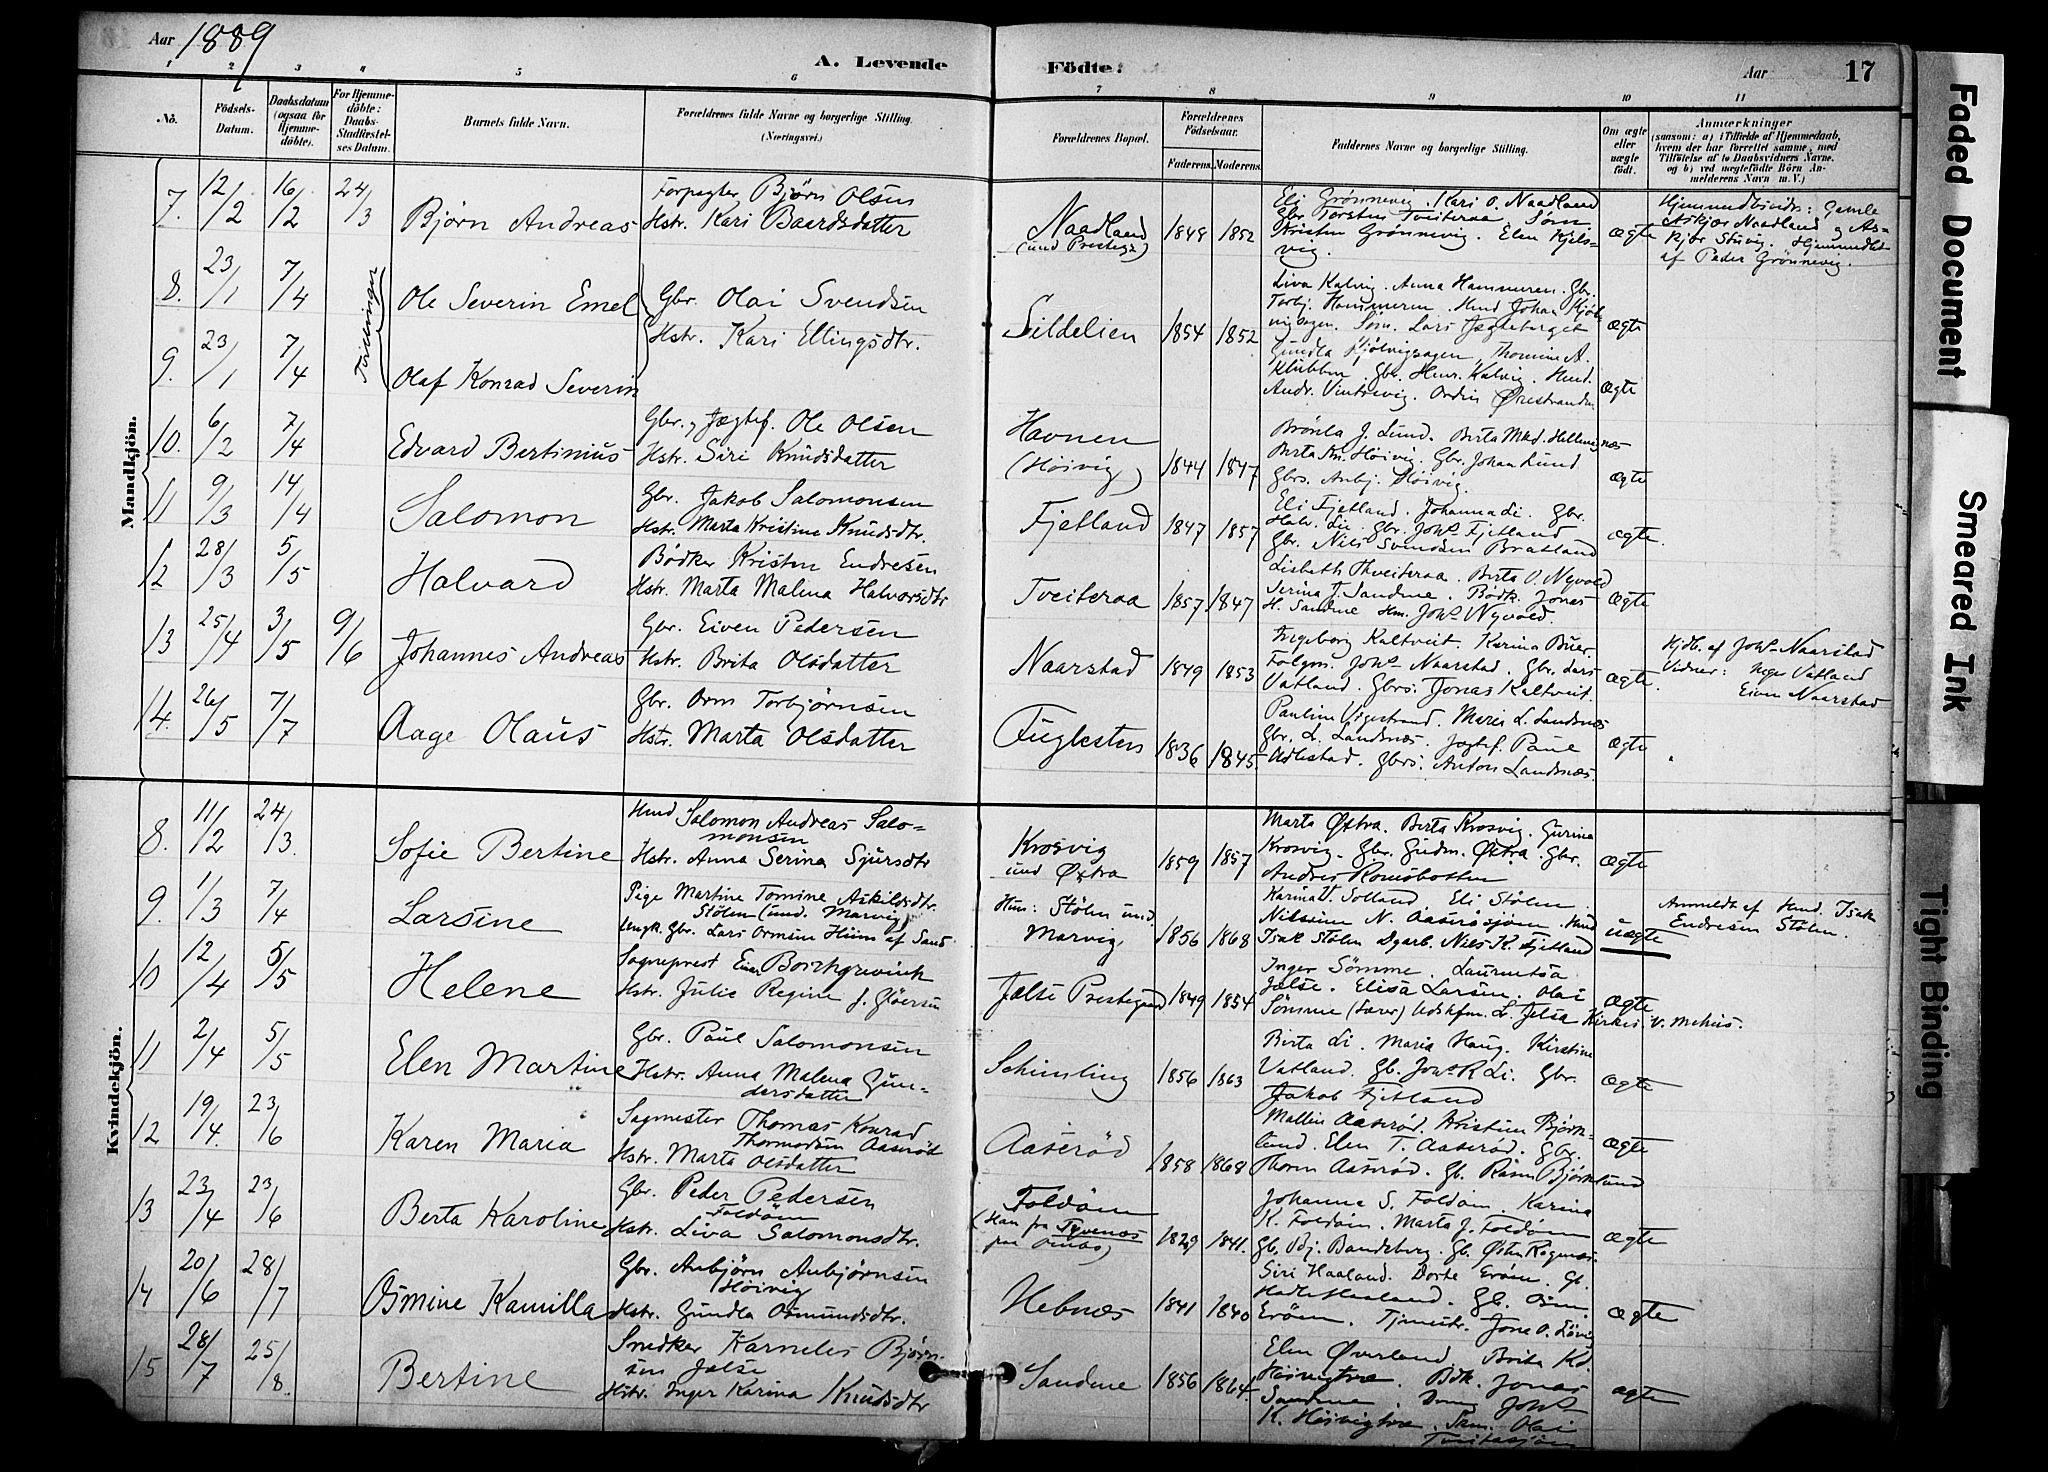 Aar 1889
A. Levende Födte.
Aar 17
1 2 3 4 5 6 7 8 9 10 11
No.
Födsels-Datum.
Daabsdatum (ogsaa for Hjemmedöbte).
For Hjemmedöbte: Daabs-Stadfæstelses Datum.
Barnets fulde Navn.
Forældrenes fulde Navne og borgerlige Stilling.
(Næringsvei.)
Forældrenes Bopæl.
Forældrenes Födselsaar.
Faderens. Moderens.
Faddernes Navne og borgerlige Stilling.
Om ægte eller uægte födt.
Anmærkninger
(saasom: a) i Tilfælde af Hjemmedaab, hvem der har forrettet samme, med Tilföielse af to Daabsvidners Navne. og b) ved uægtefödte Börn Anmelderens Navn m.V.)
Mandkjön.
7. 12/2 16/2 24/3 Björn Andreas
Forpagter Björn Olsen
Hstr. Kari Baardsdatter
Naadland
(und Prestega)
1848 1852
Eli Grønnevig. Kari O. Naadland
Gbr Torsten Tveiteraa. Søm
Kristen Grønnevig. Elen Kjels-
vig.
ægte
Gamle
Askjær Naadland og As-
kjær Stuvig. Hjemmedöbt
af Peder Grønnevig.
Tvillinger
8. 23/1 7/4 Ole Severin Emel
Gbr. Olai Svendsen
Hstr. Kari Ellingsdtr.
Sildelien
1854 1852
Liva Kalvig. Anna Hammeren. Gbr.
Torbj. Hammeren. Hmd Johan
Søm. Lars
ægte
9. 23/1 7/4 Olaf Konrad Severin
Gundla Thomine A.
Gbr. Henr. Kalvig. Hmd.
Andr. Vintrevig.
ægte
10. 6/2 7/4 Edvard Bertinius
Gbr. Jægtef. Ole Olsen
Hstr. Siri Knudsdatter
Havnen
(Höivig)
1844 1847
J. Lund. Berta
Berta M. Höivig. Gbr. Johan Lund
Gbrs. Anbj. Höivig.
ægte
11 9/3 14/4 Salomon
Gbr. Jakob Salomonsen
Hstr. Marta Kristine Knudsdtr.
Fjetland
1847 1857
Eli Fjetland. Johanna Li. Gbr.
Halv. Li. Gbr. Johs Fjetland
Gbr. Nils Svendsen Bratland
ægte.
12 28/3 5/5 Halvard
Bødker Kristen Endresen
Hstr. Marta Malena Halvorsdtr
Tveiteraa
1857 1847
Lisbeth Thveiteraa. Berta O. Nyvold
Serina J. Sandme. Bødk. Jonas
H. Sandme Hm. Johs Nyvold.
ægte
13 25/4 3/5 9/6 Johannes Andreas
Gbr. Eiven Pedersen
Hstr. Brita Olsdatter
Naarstad
1849 1853
Ingeborg Kaltveit. Karina Buer.
Folgm. Johs Naarstad. Gbr. Lars
Vatland. Gbrs. Jonas Kaltveit.
ægte.
Hjdb. af Johs Naarstad
Vidner: Inger Vatland
Eiven Naarstad
14. 26/5 7/7 Aage Olaus
Gbr. Orm Torbjørnsen
Hstr. Marta Olsdatter
Fuglesten
1836 1845.
Pauline Vigestrand. Maria L. Landsnæs
Gbr. L. Landsnæs. Jægtef. Paul
Adlestad. Gbrs. Anton Landsnæs.
ægte
Kvindekjön.
8. 11/2 24/3. Sofie Bertine
Hmd Salomon Andreas Salo=
monsen
Hstr. Anna Serina Sjursdtr
Krosvig
und Østra
1859 1857
Marta Østra. Berta Krosvig. Gurina
Krosvig. Gbr. Gudm. Østra. Gbr.
Andres Romsbotten
ægte
9. 1/3 7/4 Larsine
Pige Martine Tomine Askildsdtr.
Stølen (und. Marvig)
Ungk. Gbr. Lars Ormsen Hiim af Sand
Hun: Stølen und.
Marvig
1856 1868
Karina V. Solland. Eli Stølen
Nilsine N. Aaserøsjøen. Hmd
Isak Stølen Dgarb. Nils K. Fjetland
uægte
Anmeldt af Hmd. Isak
Endresen Stølen.
10 12/4 5/5 Helene
Sogneprest Einar Borchgrevink
Hstr. Julie Regine f. Gløersen
Jelse Prestegaard
1849 1854
Inger Sömme. Laurentsa
Jelse. Elisa Larsen. Olai
Sömme (Lærer) L. Jelsa Kirkes. V.
ægte
11 2/4 5/5 Elen Martine
Gbr. Paul Salomonsen
Hstr. Anna Malena Gun-
dersdatter
Schimling
1856 1863
Berta Li. Maria Haug. Kirstine
Vatland. Gb. Johs R Li. Gbr.
Jakob Fjetland
ægte
12 19/4. 23/6 Karen Maria
Sagmester Thomas Konrad
Thormodsen Aaserød
Hstr. Marta Olsdatter
Aaserød
1858 1868
Mallin Aaserød. Kristine Bjørk-
lund. Elen T. Aaserød. Gbr.
Thorm Aaserød. Gb. Rasm Bjørklund
ægte
13 23/4 23/6 Berta Karoline
Gbr. Peder Pedersen
Foldöm
Hstr. Liva Salomonsdtr.
Foldöm
(Han fra Tyvenæs
paa Ombo)
1829 1841.
Johanna S. Foldöm. Karina
K. Foldöm. Marta J. Foldöm
Gb. Bandsberg. Gb. Østen
ægte
14 20/6 28/7 Osmine Kamilla
Gbr. Anbjørn Anbjørnsen
Höivig
Hstr. Gundla Osmundsdtr.
Hebnes
1841 1840
Siri Haaland. Dorte Eröen. Gb.
Hadle Haaland. Gb. Osm
Eröen. Tjenestr. Jone O.
ægte
15 28/7 25/8. Bertine
Snedker Karneles Bjørn-
sen Jelse
Hstr. Inger Karina Knudsdtr
Sandme
1856 1864.
Elen Øverland. Brita Kd.
Höivigtvre. Bdk. Jonas
Sandme. Johs
K. Höivigtvre. Olai
Tveitasjöen
ægte
Faded Document
Smeared Ink
Tight Binding